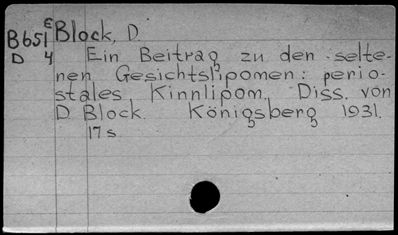 E
B651 Block, D.
D 4 Ein Beitrag zu den selte-
nen Gesichtslipomen: perio-
stales Kinnlipom. Diss. von
D Block. Königsberg 1931.
17 s